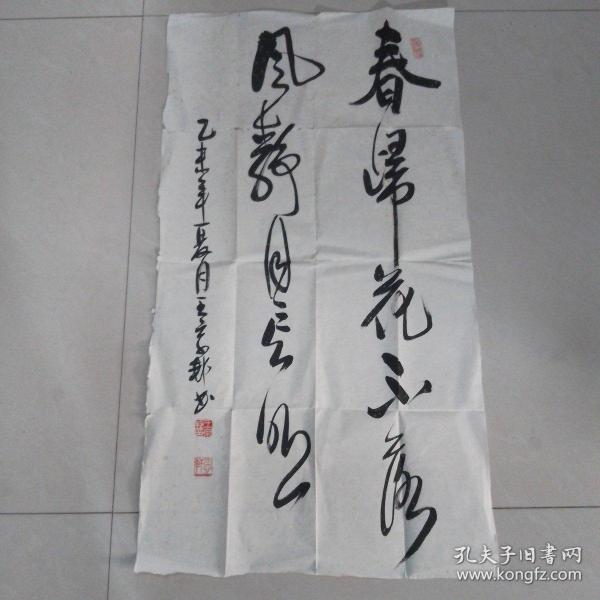 春歸花不落
風靜月長明
乙未年夏月王
书
孔夫子旧书网
www.kongfz.com